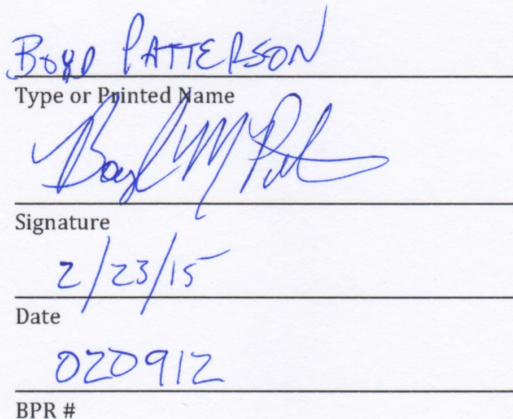 Boyd PATTERSON
Type or Printed Name
Boyd M Pat
Signature
2/23/15
Date
020912
BPR #